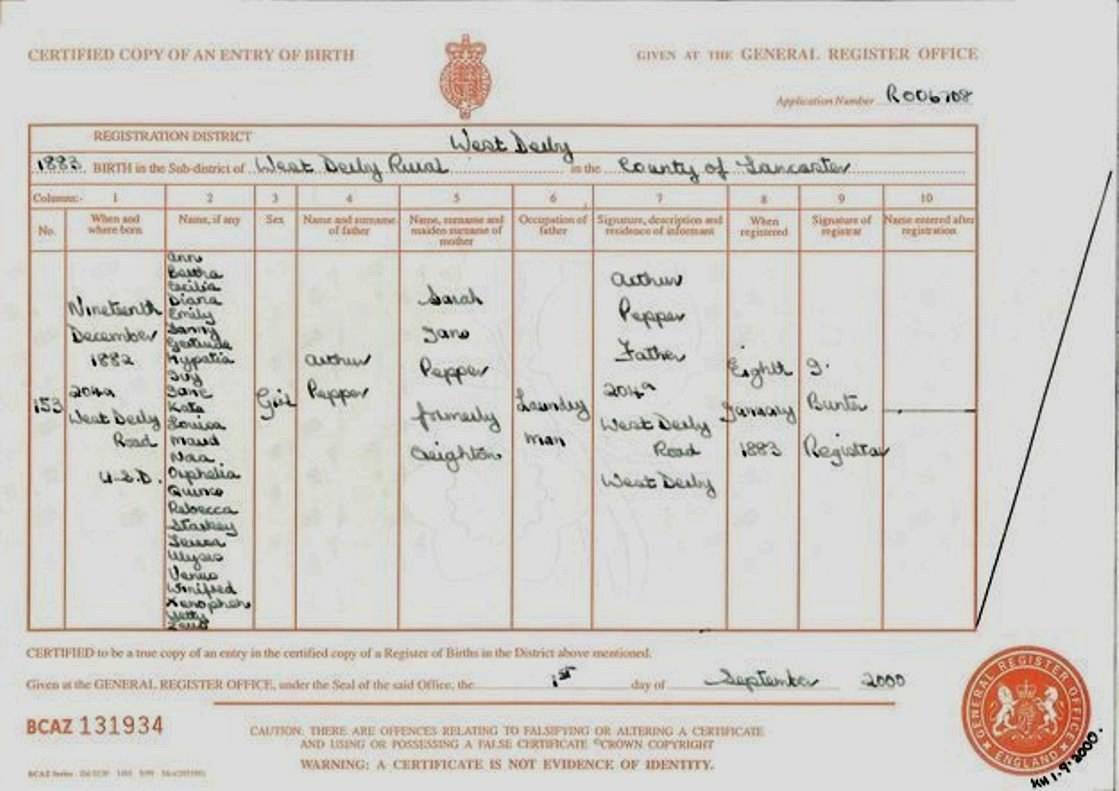 CERTIFIED COPY OF AN ENTRY OF BIRTH
GIVEN AT THE GENERAL REGISTER OFFICE
Application Number R006708
REGISTRATION DISTRICT West Derby
1883 BIRTH in the Sub-district of West Derby Rural in the County of Lancaster
Columns:- 1 2 3 4 5 6 7 8 9 10
No. When and where born Name, if any Sex Name and surname of father Name, surname and maiden surname of mother Occupation of father Signature, description and residence of informant When registered Signature of registrar Name entered after registration
153
Nineteenth
December
1882
204a
West Derby
Road
U.S.D.
Ann
Bertha
Cecilia
Diana
Emily
Fanny
Gertrude
Hypatia
Iug
Jane
Kate
Louisa
Maud
Nora
Orphelia
Quince
Rebecca
Starkey
Teresa
Ulysis
Venus
Winifred
Xenophen
Yetty
Zeus
Girl
Arthur
Pepper
Sarah
Jane
Pepper
formerly
Creighton
Laundry
man
Arthur
Pepper
Father
204a
West Derby
Road
West Derby
Eighth
January
1883
Registrar
CERTIFIED to be a true copy of an entry in the certified copy of a Register of Births in the District above mentioned.
Given at the GENERAL REGISTER OFFICE, under the Seal of the said Office, the 1st day of September 2000
BCAZ 131934
CAUTION: THERE ARE OFFENCES RELATING TO FALSIFYING OR ALTERING A CERTIFICATE
AND USING OR POSSESSING A FALSE CERTIFICATE ©CROWN COPYRIGHT
WARNING: A CERTIFICATE IS NOT EVIDENCE OF IDENTITY.
BCAZ Series
GENERAL REGISTER OFFICE
ENGLAND
KH 1.9.2000.